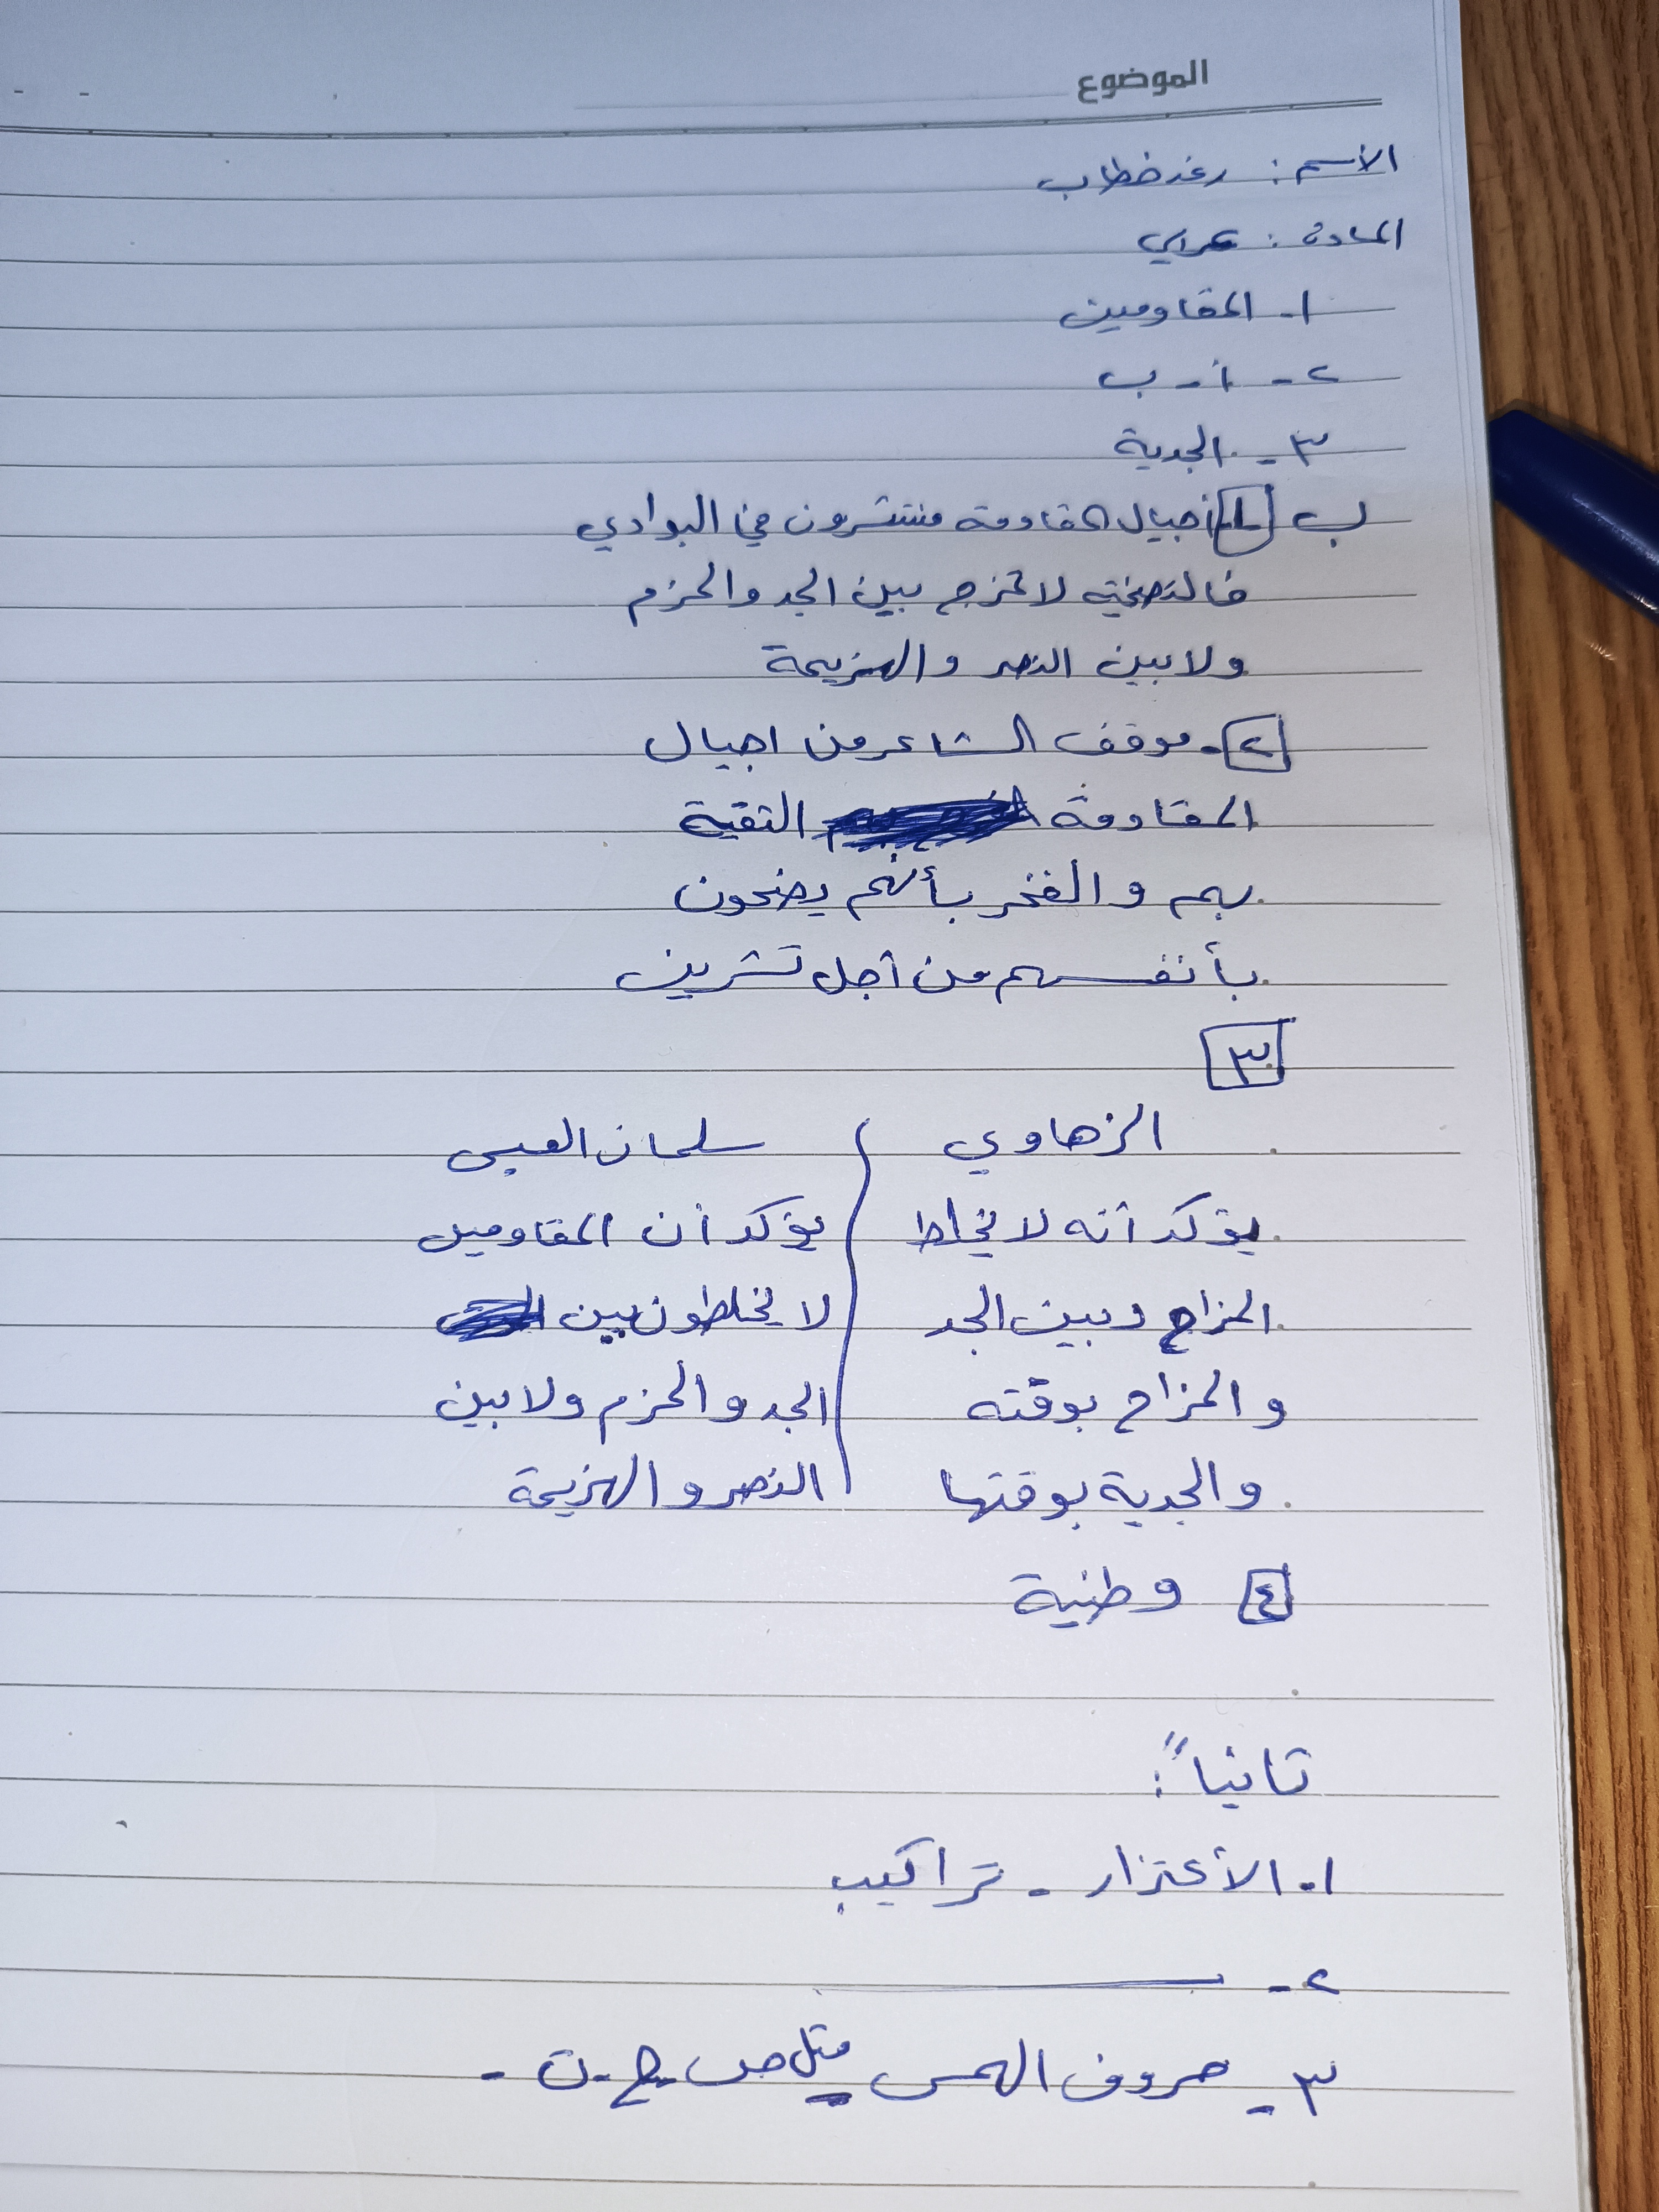 الموضوع
الأسم : رغد خطاب
المادة : عربي
١- المقاومين
٢- أ - ب
٣- الجدية
ب ١- أجيال المقاومة منتشرون في البوادي
فالتضحية لا تمزج بين الجد والحزم
ولا بين النصر والهزيمة
٢- موقف الشاعر من اجيال
المقاومة التقية
بهم والفخر بأنهم يضحون
بأنفسهم من أجل تشرين
٣
الزهاوي سلمان العيسى
يؤكد أنه لا يخلط يؤكد أن المقاومين
المزاح وبين الجد لا يخلطون بين
والمزاح بوقته الجد والحزم ولا بين
والجدية بوقتها النصر والهزيمة
٤ وطنية
ثانياً :
١- الأعتزار - تراكيب
٢-
٣- حروف الهمس مثل ص ح - ت -